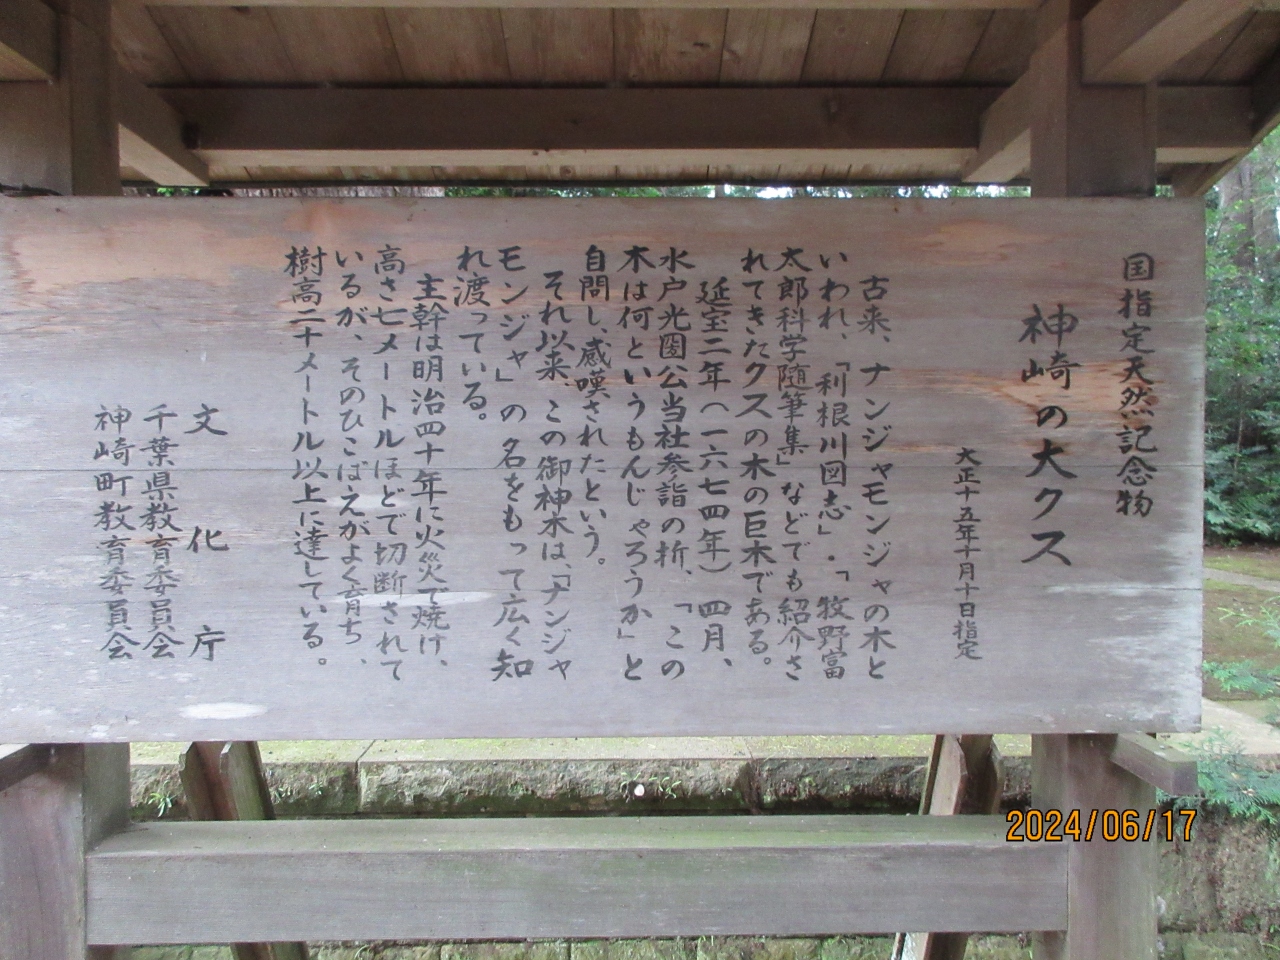 国指定天然記念物
神崎の大クス
大正十五年十月十日指定
古来、ナンジャモンジャの木と
いわれ、「利根川図志」・「牧野富
太郎科学随筆集」などでも紹介さ
れてきたクスの木の巨木である。
延宝二年(一六七四年)四月、
水戸光圀公当社参詣の折、「この
木は何というもんじゃろうか」と
自問し、感嘆されたという。
それ以来、この御神木は、「ナンジャ
モンジャ」の名をもって広く知
れ渡っている。
主幹は明治四十年に火災で焼け、
高さ七メートルほどで切断されて
いるが、そのひこばえがよく育ち、
樹高二十メートル以上に達している。
文化庁
千葉県教育委員会
神崎町教育委員会
2024/06/17